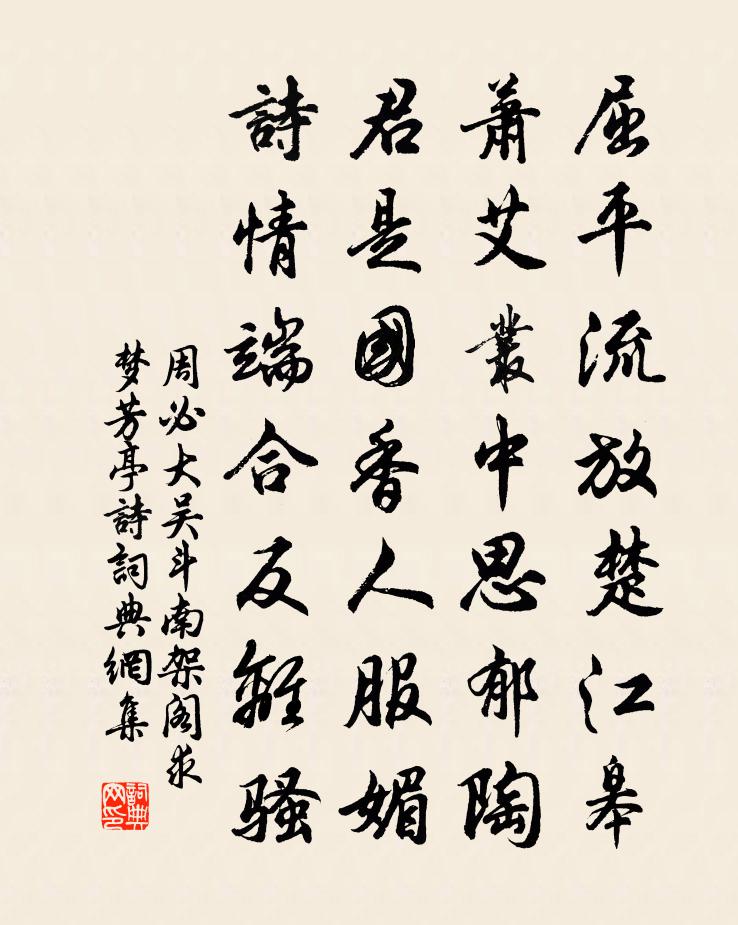 屈平流放楚江皋
萧艾叢中思郁陶
君是國香人服媚
詩情端合反離骚
周必大吴斗南架阁求
梦芳亭詩詞典網集
詞典网印